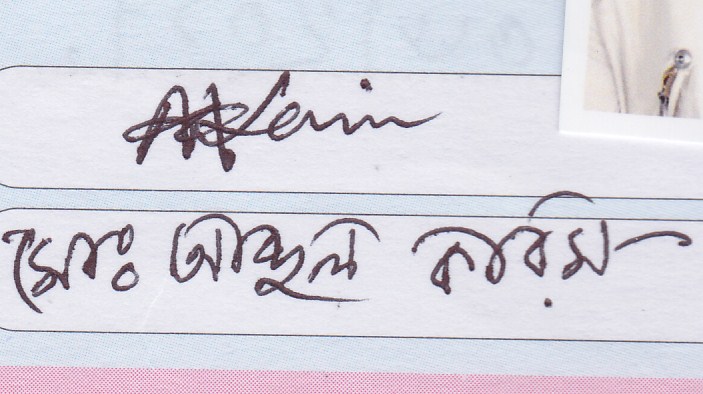 AKKarim
মোঃ আব্দুল করিম